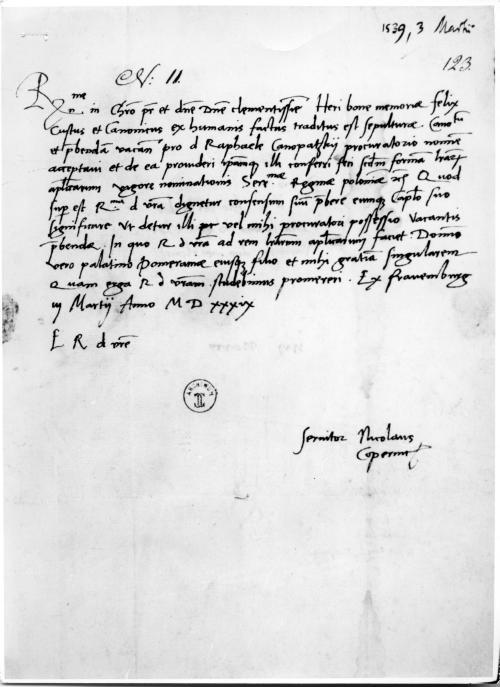 1539, 3 Martii
123.
N: 11.
R.me
in Chro pr et dne Dne clementissie Heri bone memorie felix
Custos et Canonicus ex humanis factus traditus est sepulturæ. Canotu
et pbenda vacan pro d Raphaele Canopatskij procuratorio nomine
acceptavi et de ea provideri illi conferri feci scdm forma
aplicarum vigore nominationis Ser.mae Reginæ poloniæ Quod
sup est R.mu d vra dignetur consensum suu pbere eumq Caplo suo
significare Vt detur illi per vel mihi procuratori possessio Vacantis
pbendæ. In quo R d vra ad rem lrarum aplicarum faciet Domino
vero palatino Pomeraniæ eiusq filio et mihi gratiã singularem
Quam erga R d vram studebimus promereri. Ex Frauenburg
iij Martij Anno M D xxxix
E R d vræ
ARCHIWUM
Servitor Nicolaus
Copernic